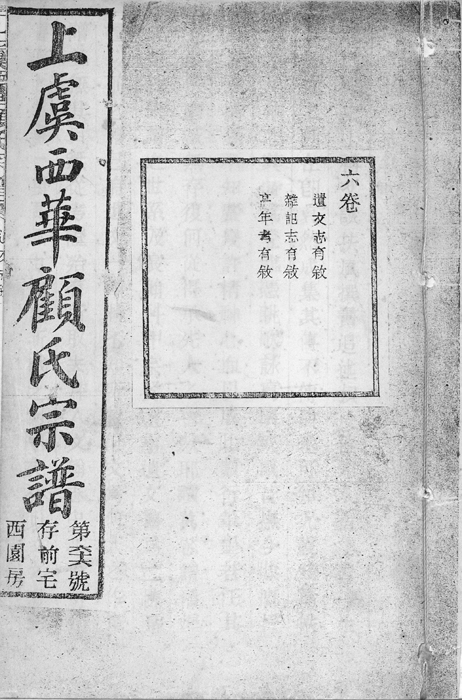 六卷
遺文志有敘
雜記志有敘
高年考有敘
上虞西華顧氏宗譜
第 號
存前宅
西園房